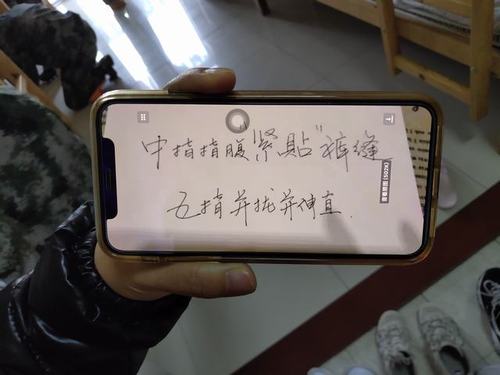 中指指腹"紧貼"裤缝
五指并拢并伸直.